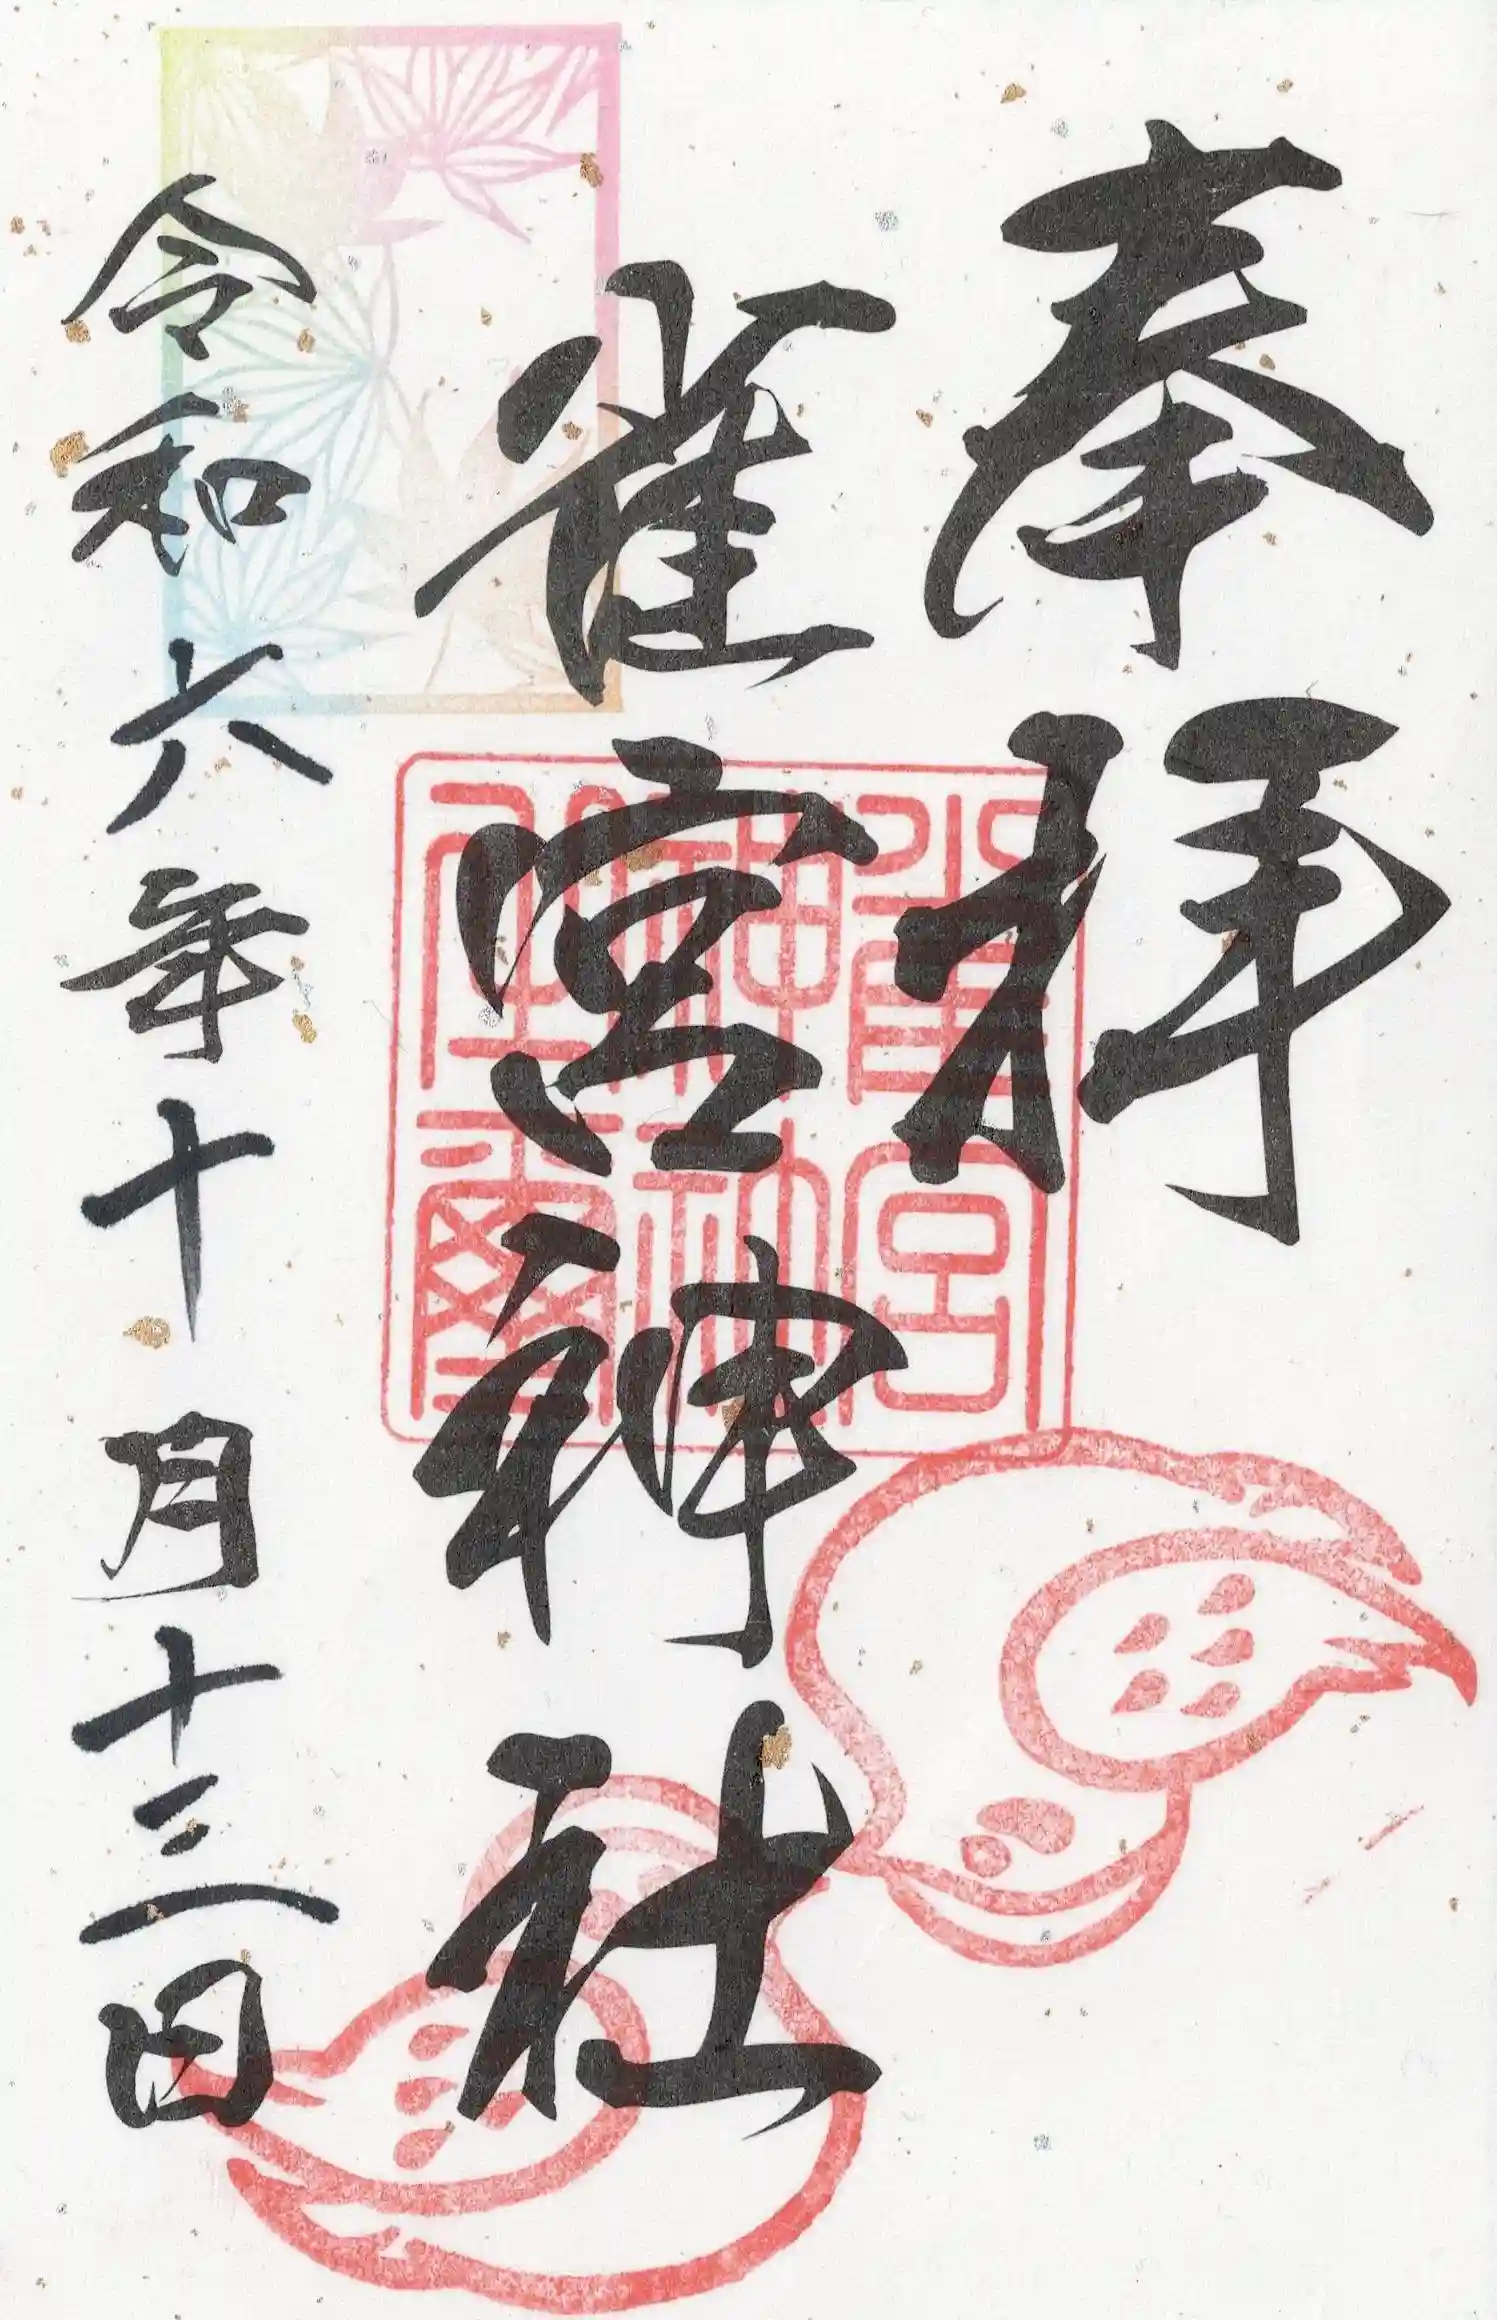 奉拝
雀宮神社
令和六年十月十三日
雀宮
神社
神璽